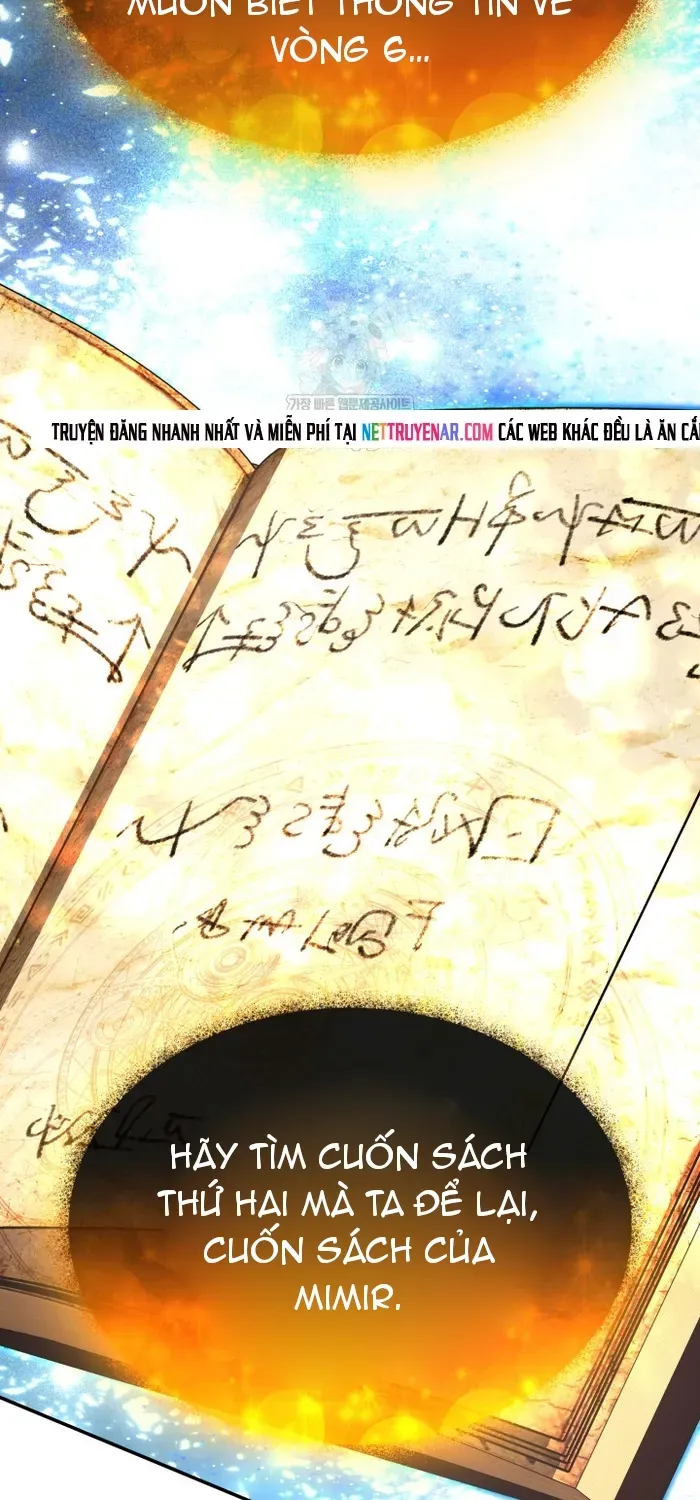 MUỐN BIẾT THÔNG TIN VỀ
VÒNG 6...
가장 빠른 웹툰제공사이트
TRUYỆN ĐĂNG NHANH NHẤT VÀ MIỄN PHÍ TẠI NETTRUYENAR.COM CÁC WEB KHÁC ĐỀU LÀ ĂN CẮ
HÃY TÌM CUỐN SÁCH
THỨ HAI MÀ TA ĐỂ LẠI,
CUỐN SÁCH CỦA
MIMIR.